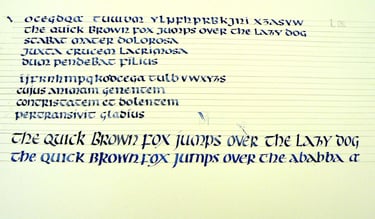 oceqdqa tuwvm ylpfhprbkjni xzasvw
the quick brown fox jumps over the lazy dog
stabat mater dolorosa
juxta crucem lacrimosa
dum pendebat filius
cujus animam gementem
contristatem et dolentem
pertransivit gladius
the quick brown fox jumps over the lazy dog
the quick brown fox jumps over the ababba a